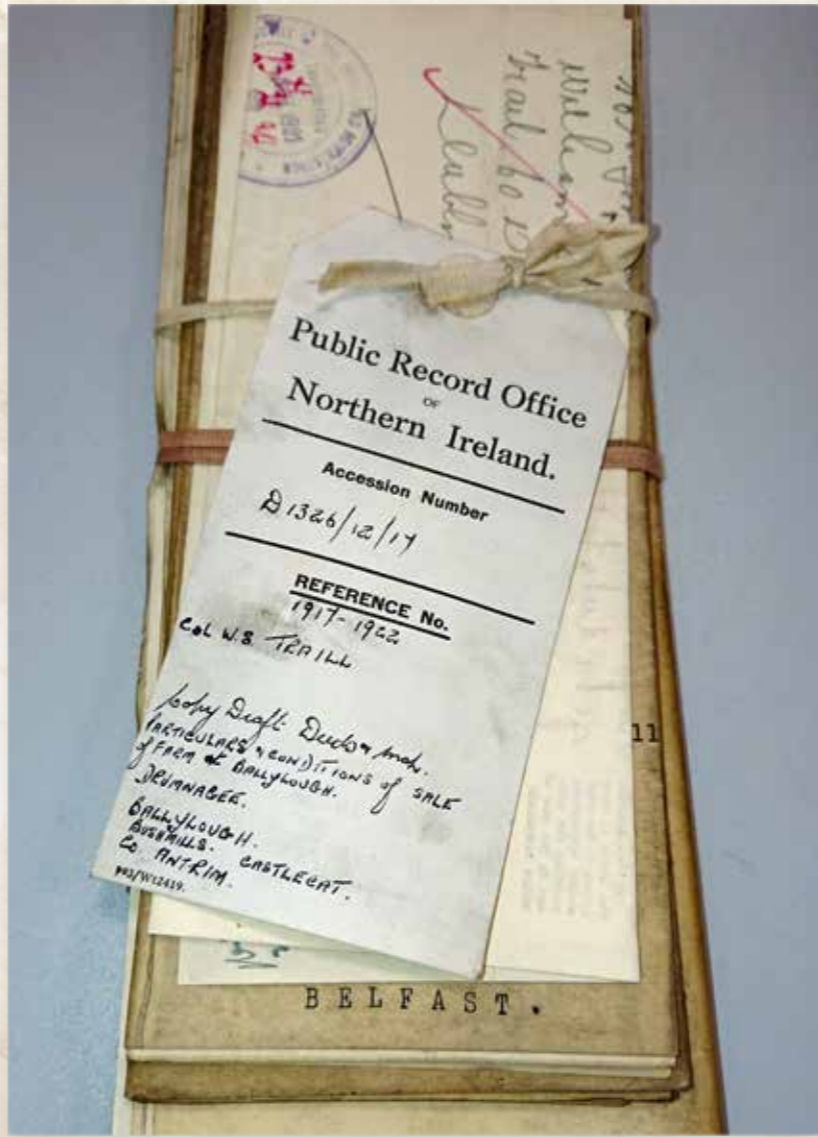 William
Trail
Public Record Office
OF
Northern Ireland.
Accession Number
D1326/12/17
REFERENCE No.
1917-1922
COL W.S. TRAILL
Copy Draft Deeds
PARTICULARS & CONDITIONS of SALE
of FARM at BALLYLOUGH.
DRUMNAGEE.
BALLYLOUGH.
BUSHMILLS. CASTLECAT.
CO. ANTRIM.
11
BELFAST.